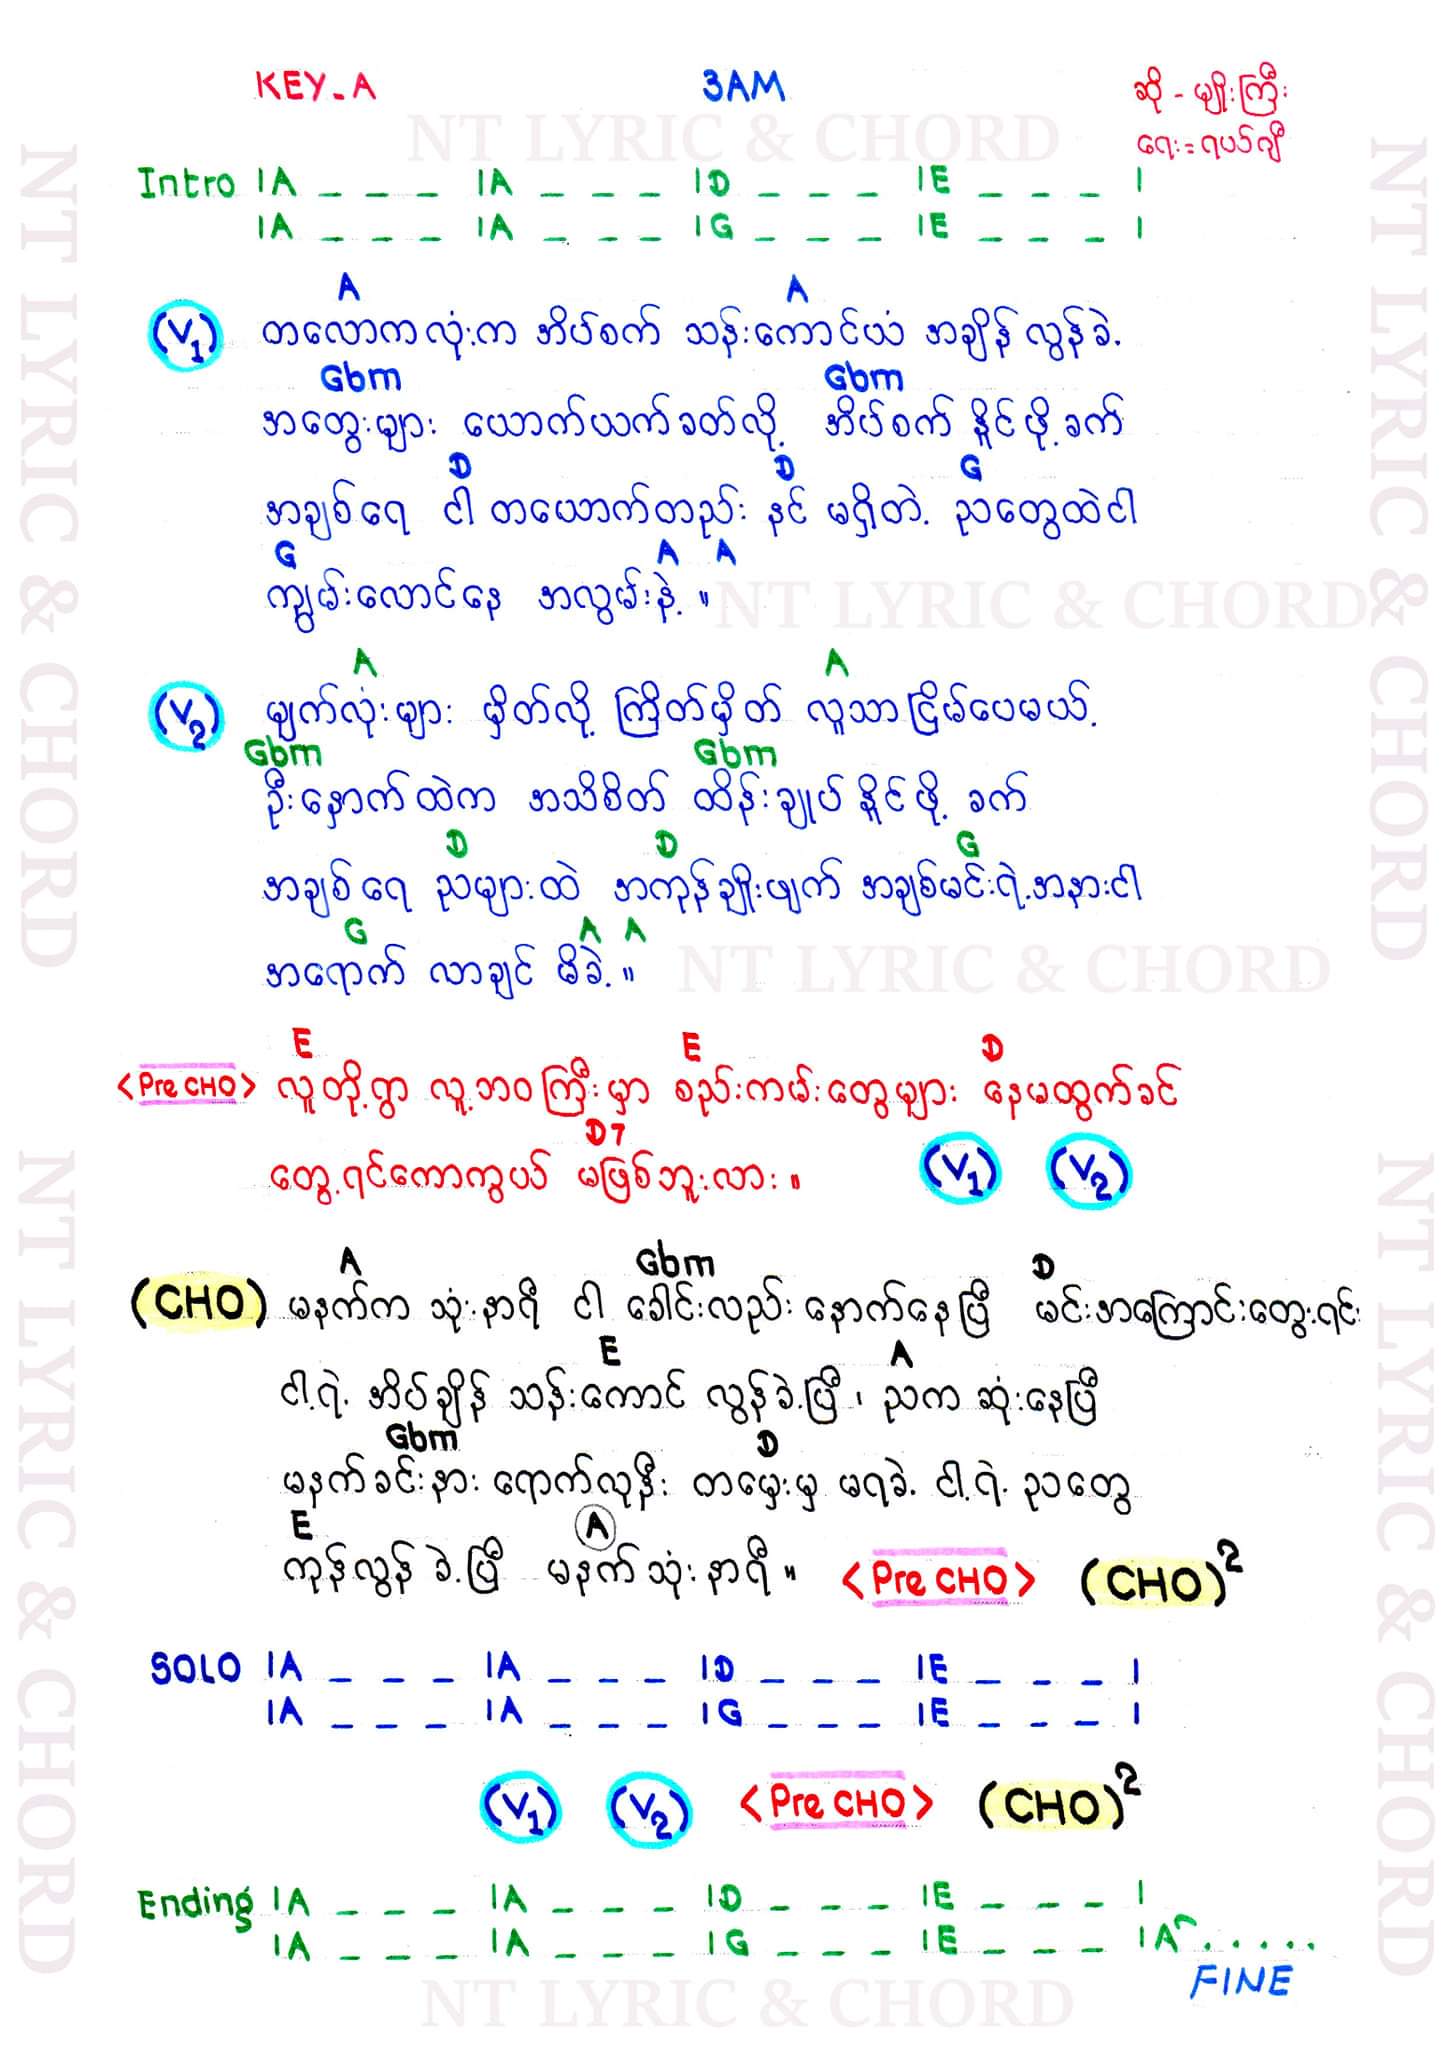 KEY-A 3AM ဆို - မျိုးကြီး
ရေး = ရပ်ဂျီ
NT LYRIC & CHORD
Intro | A _ _ _ | A _ _ _ | D _ _ _ | E _ _ _ |
| A _ _ _ | A _ _ _ | G _ _ _ | E _ _ _ |
A A
(V1) တလောကလုံးက အိပ်စက် သန်းကောင်ယံ အချိန် လွန်ခဲ့
Gbm Gbm
အတွေးများ ယောက်ယက်ခတ်လို့ အိပ်စက် နိူင်ဖို့ ခက်
D D G
အချစ်ရေ ငါ တယောက်တည်း နင် မရှိတဲ့ ညတွေထဲငါ
G A A
ကျွမ်းလောင်နေ အလွမ်းနဲ့ ။
NT LYRIC & CHORD
A A
(V2) မျက်လုံးများ မှိတ်လို့ ကြိတ်မှိတ် လူသာငြိမ်ပေမယ့်
Gbm Gbm
ဦးနှောက်ထဲက အသိစိတ် ထိန်းချုပ် နိူင်ဖို့ ခက်
D D G
အချစ်ရေ ညများထဲ အကုန်ချိုးဖျက် အချစ်မင်းရဲ့အနားငါ
G A A
အရောက် လာချင် မိခဲ့ ။
NT LYRIC & CHORD
E E D
<Pre CHO> လူတို့ရွာ လူ့ဘဝကြီးမှာ စည်းကမ်းတွေများ နေမထွက်ခင်
D7
တွေ့ရင်ကောကွယ် မဖြစ်ဘူးလား ။ (V1) (V2)
A Gbm D
(CHO) မနက်က သုံးနာရီ ငါ ခေါင်းလည်း နောက်နေပြီ မင်းအကြောင်းတွေးရင်း
E A
ငါ့ရဲ့ အိပ်ချိန် သန်းကောင် လွန်ခဲ့ပြီ ၊ ညက ဆုံးနေပြီ
Gbm D
မနက်ခင်းနား ရောက်လုနီး တမှေးမှ မရခဲ့ ငါ့ရဲ့ ညတွေ
E A
ကုန်လွန် ခဲ့ပြီ မနက်သုံးနာရီ ။ <Pre CHO> (CHO)²
SOLO | A _ _ _ | A _ _ _ | D _ _ _ | E _ _ _ |
| A _ _ _ | A _ _ _ | G _ _ _ | E _ _ _ |
(V1) (V2) <Pre CHO> (CHO)²
Ending | A _ _ _ | A _ _ _ | D _ _ _ | E _ _ _ |
| A _ _ _ | A _ _ _ | G _ _ _ | E _ _ _ | A . . . . .
FINE
NT LYRIC & CHORD
NT LYRIC & CHORD
NT LYRIC & CHORD
NT LYRIC & CHORD
NT LYRIC & CHORD